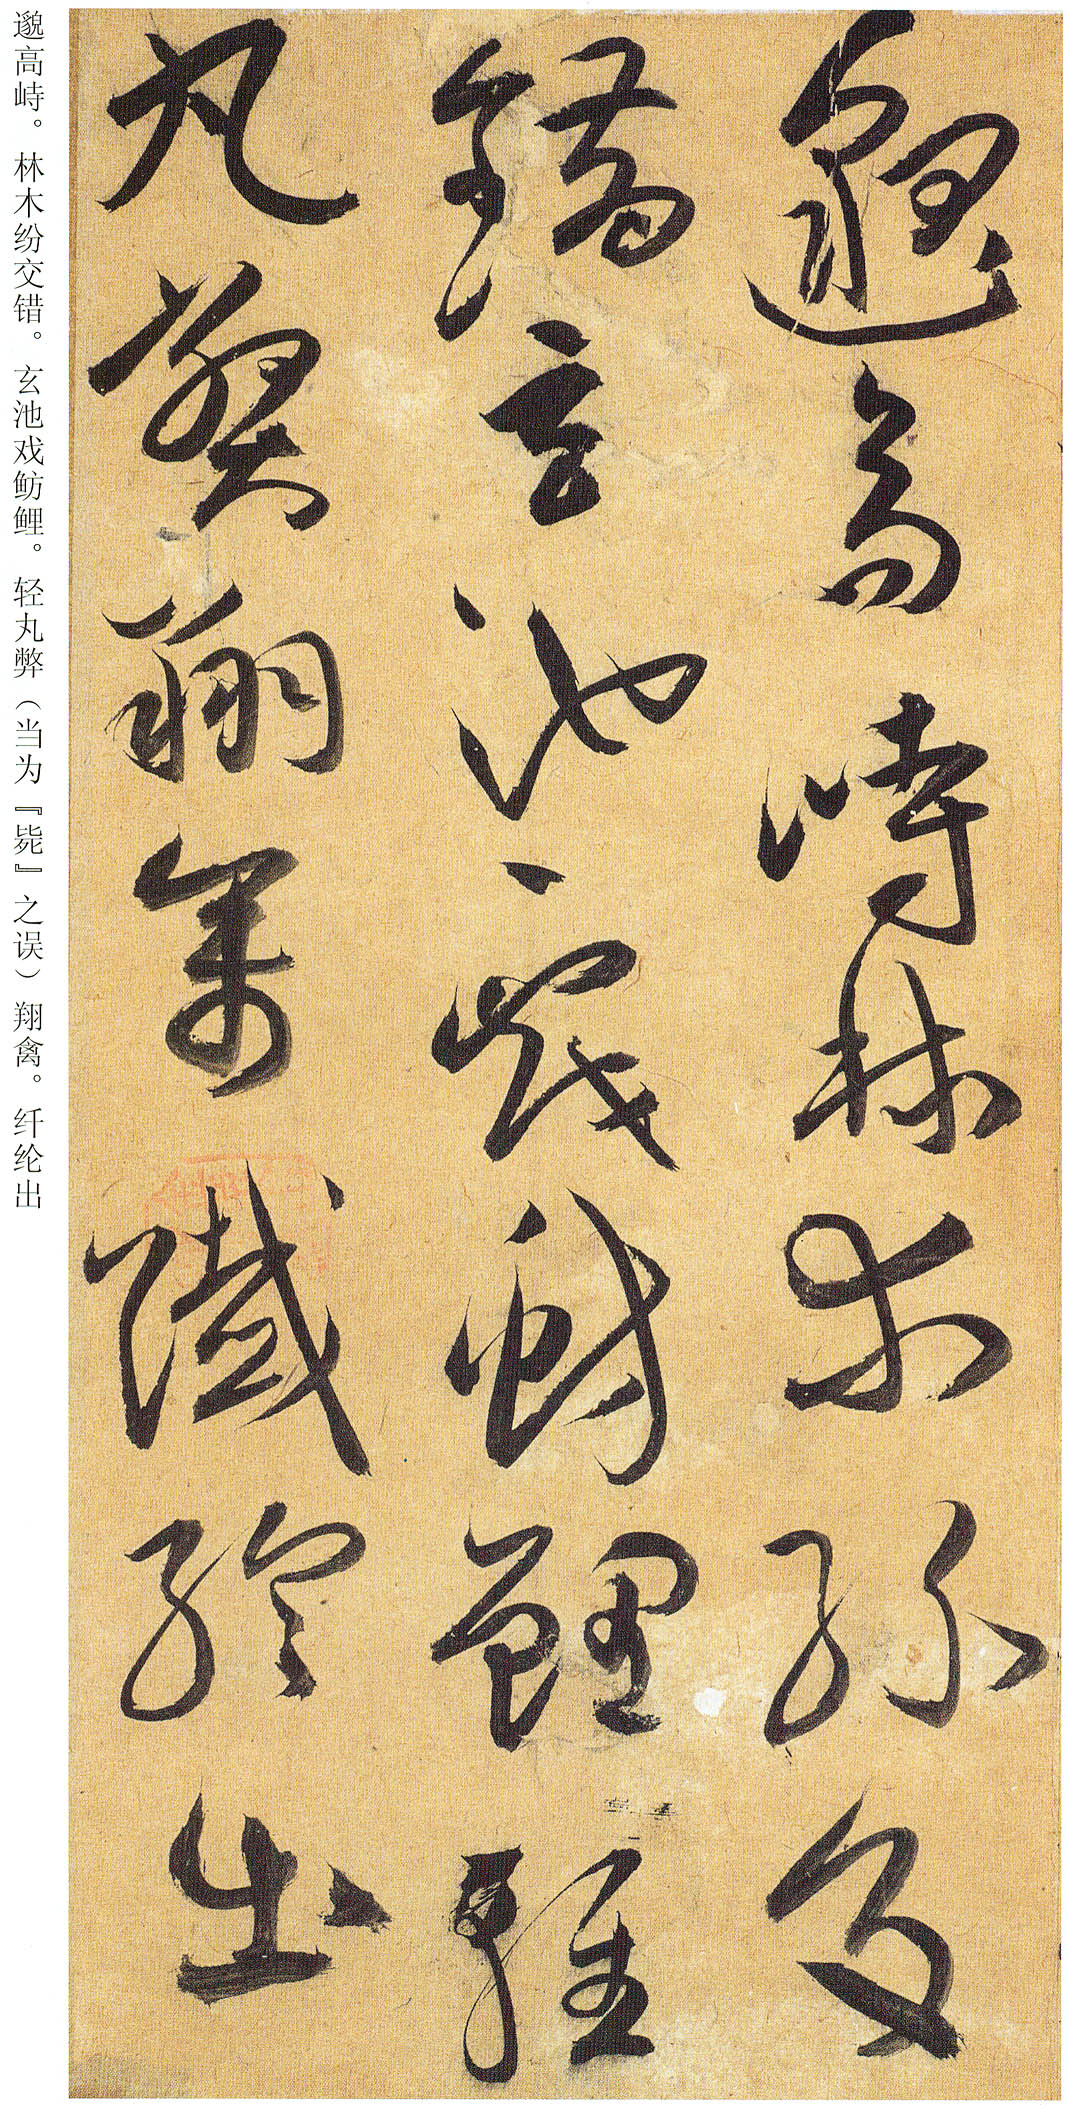 邈高峙林木纷交
错玄池戏鲂鲤轻
丸弊翔禽纤纶出
邈高峙。林木纷交错。玄池戏鲂鲤。轻丸弊（当为『毙』之误）翔禽。纤纶出